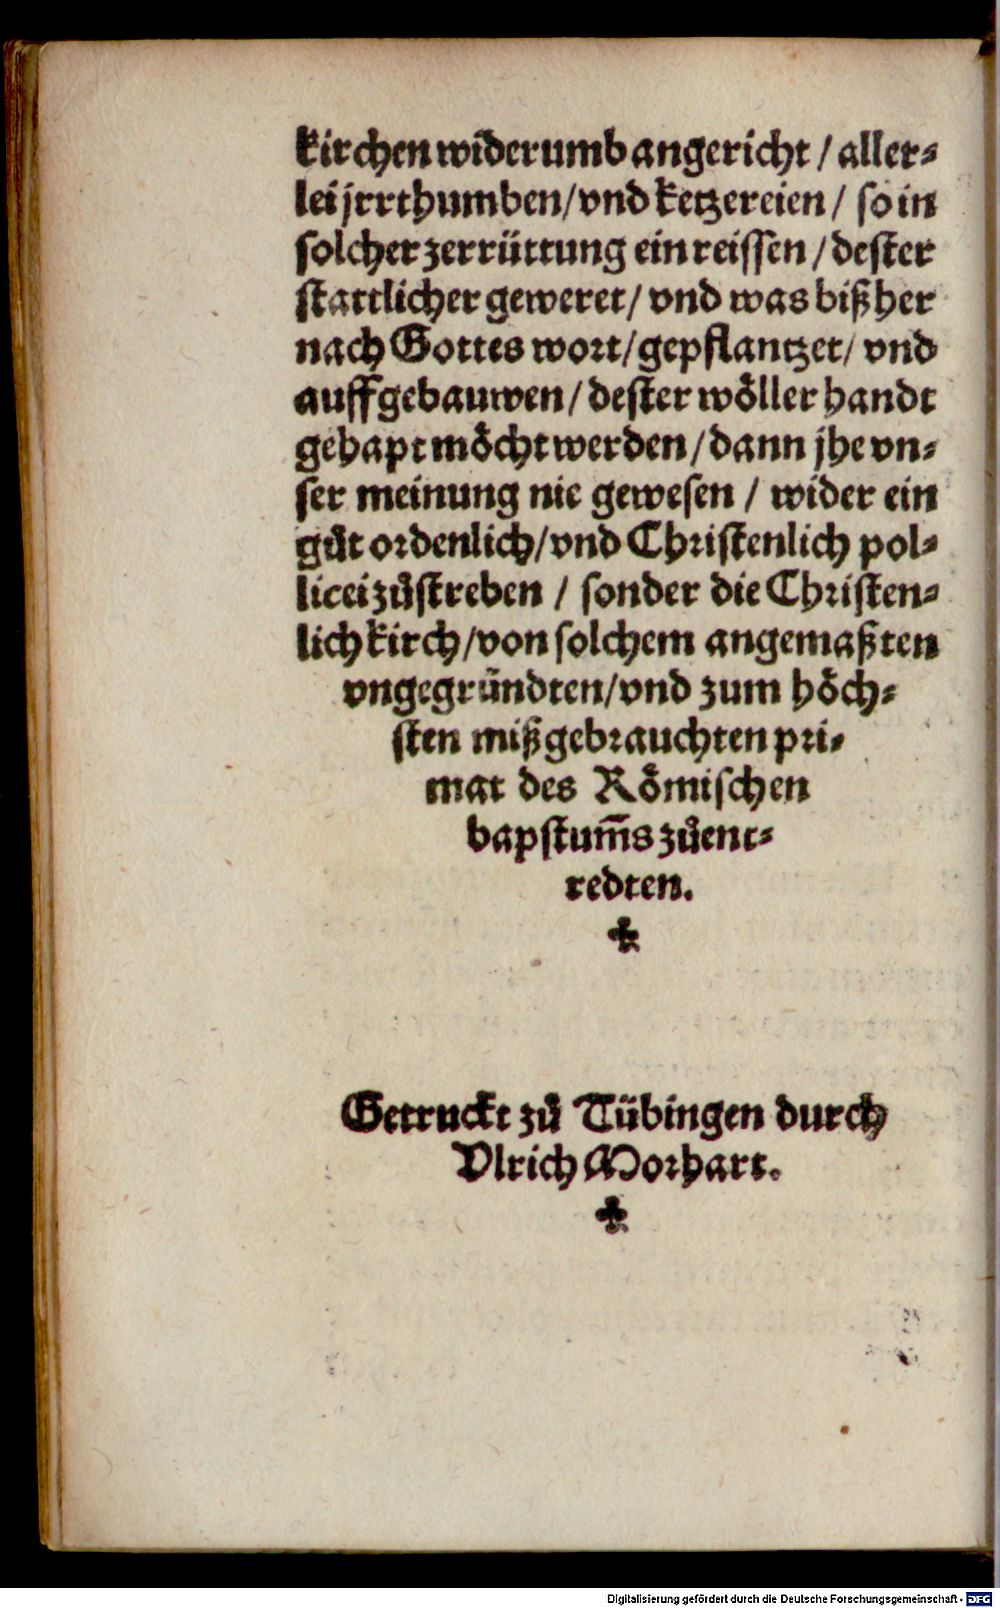 kirchen widerumb angericht / aller⸗
lei jrrthumben/ vnd ketzereien / so in
solcher zerrüttung einreissen / dester
stattlicher geweret/ vnd was bißher
nach Gottes wort/ gepflantzet/ vnd
auffgebauwen / dester wöller handt
gehapt möcht werden / dann jhe vn⸗
ser meinung nie gewesen / wider ein
gůt ordenlich/ vnd Christenlich pol⸗
licei zůstreben / sonder die Christen⸗
lich kirch/ von solchem angemaßten
vngegründten/ vnd zum höch⸗
sten mißgebrauchten pri⸗
mat des Römischen
bapstum̄s zůent⸗
redten.
Getruckt zů Tübingen durch
Vlrich Morhart.
Digitalisierung gefördert durch die Deutsche Forschungsgemeinschaft - DFG